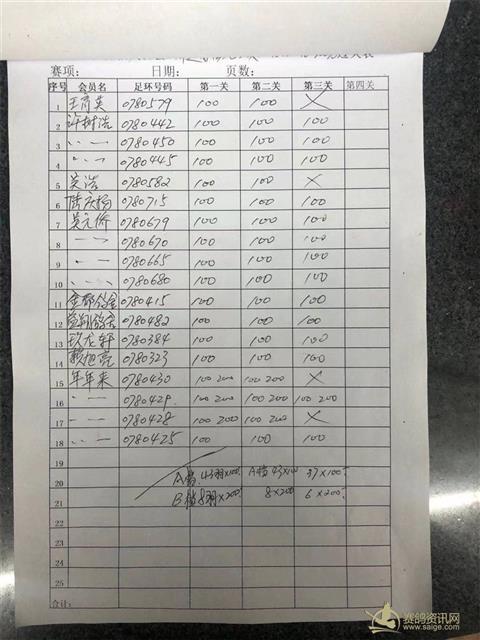 赛项： 日期： 页数：
序号 会员名 足环号码 第一关 第二关 第三关 第四关
1 王育英 0780579 100 100 ×
2 许树浩 0780442 100 100 100
3 〃 〃 0780450 100 100 100
4 〃 〃 0780445 100 100 100
5 吴浩 0780582 100 100 ×
6 0780715 100 100 100
7 吴元侨 0780679 100 100 100
8 〃 〃 0780670 100 100 100
9 〃 〃 0780665 100 100 100
10 〃 〃 0780680 100 100 100
11 金都鸽舍 0780415 100 100 100
12 翔鸽舍 0780482 100 100 100
13 龙轩 0780384 100 100 100
14 赖旭亮 0780323 100 100 100
15 年年来 0780430 100 200 100 200 ×
16 〃 〃 0780429 100 200 100 200 100 200
17 〃 〃 0780428 100 200 100 200 ×
18 〃 〃 0780425 100 100 100
19
20 A档 43羽×100 A档 43×100 37×100
21 B档 8羽×200 8×200 6×200
22
23
24
25
合计：
赛鸽资讯网
www.saige.com